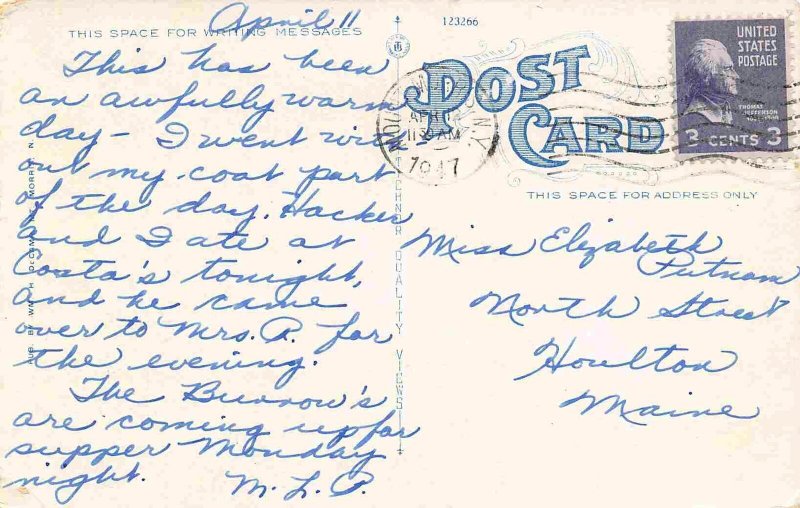 April 11
THIS SPACE FOR WRITING MESSAGES
This has been
an awfully warm
day - I went with
out my coat part
of the day. Hacker
and I ate at
Costa's tonight,
and he came
over to Mrs. R. for
the evening.
The Burrow's
are coming up for
supper Monday
night. M. L. P.
TICHNOR QUALITY VIEWS
123266
POST
CARD
11 30 AM
1947
N.Y.
UNITED
STATES
POSTAGE
THOMAS
JEFFERSON
3 CENTS 3
THIS SPACE FOR ADDRESS ONLY
Miss Elizabeth
Putnam
North Street
Houlton
Maine